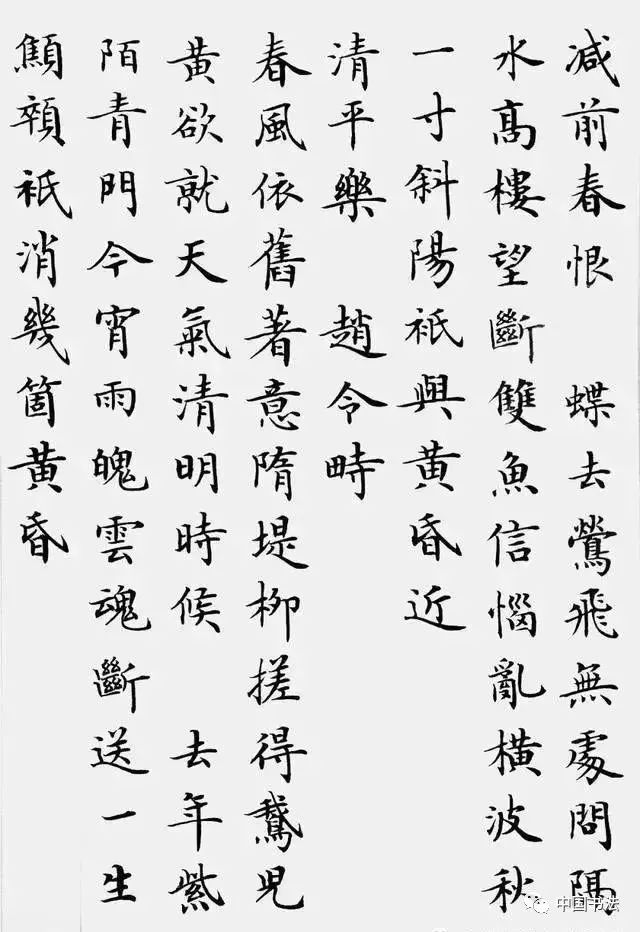 減前春恨　蝶去鶯飛無處問隔
水高樓望斷雙魚信惱亂橫波秋
一寸斜陽祇與黃昏近
清平樂　趙令畤
春風依舊著意隋堤柳搓得鵞兒
黃欲就天氣清明時候　去年紫
陌青門今宵雨魄雲魂斷送一生
顦顇祇消幾箇黃昏
中国书法